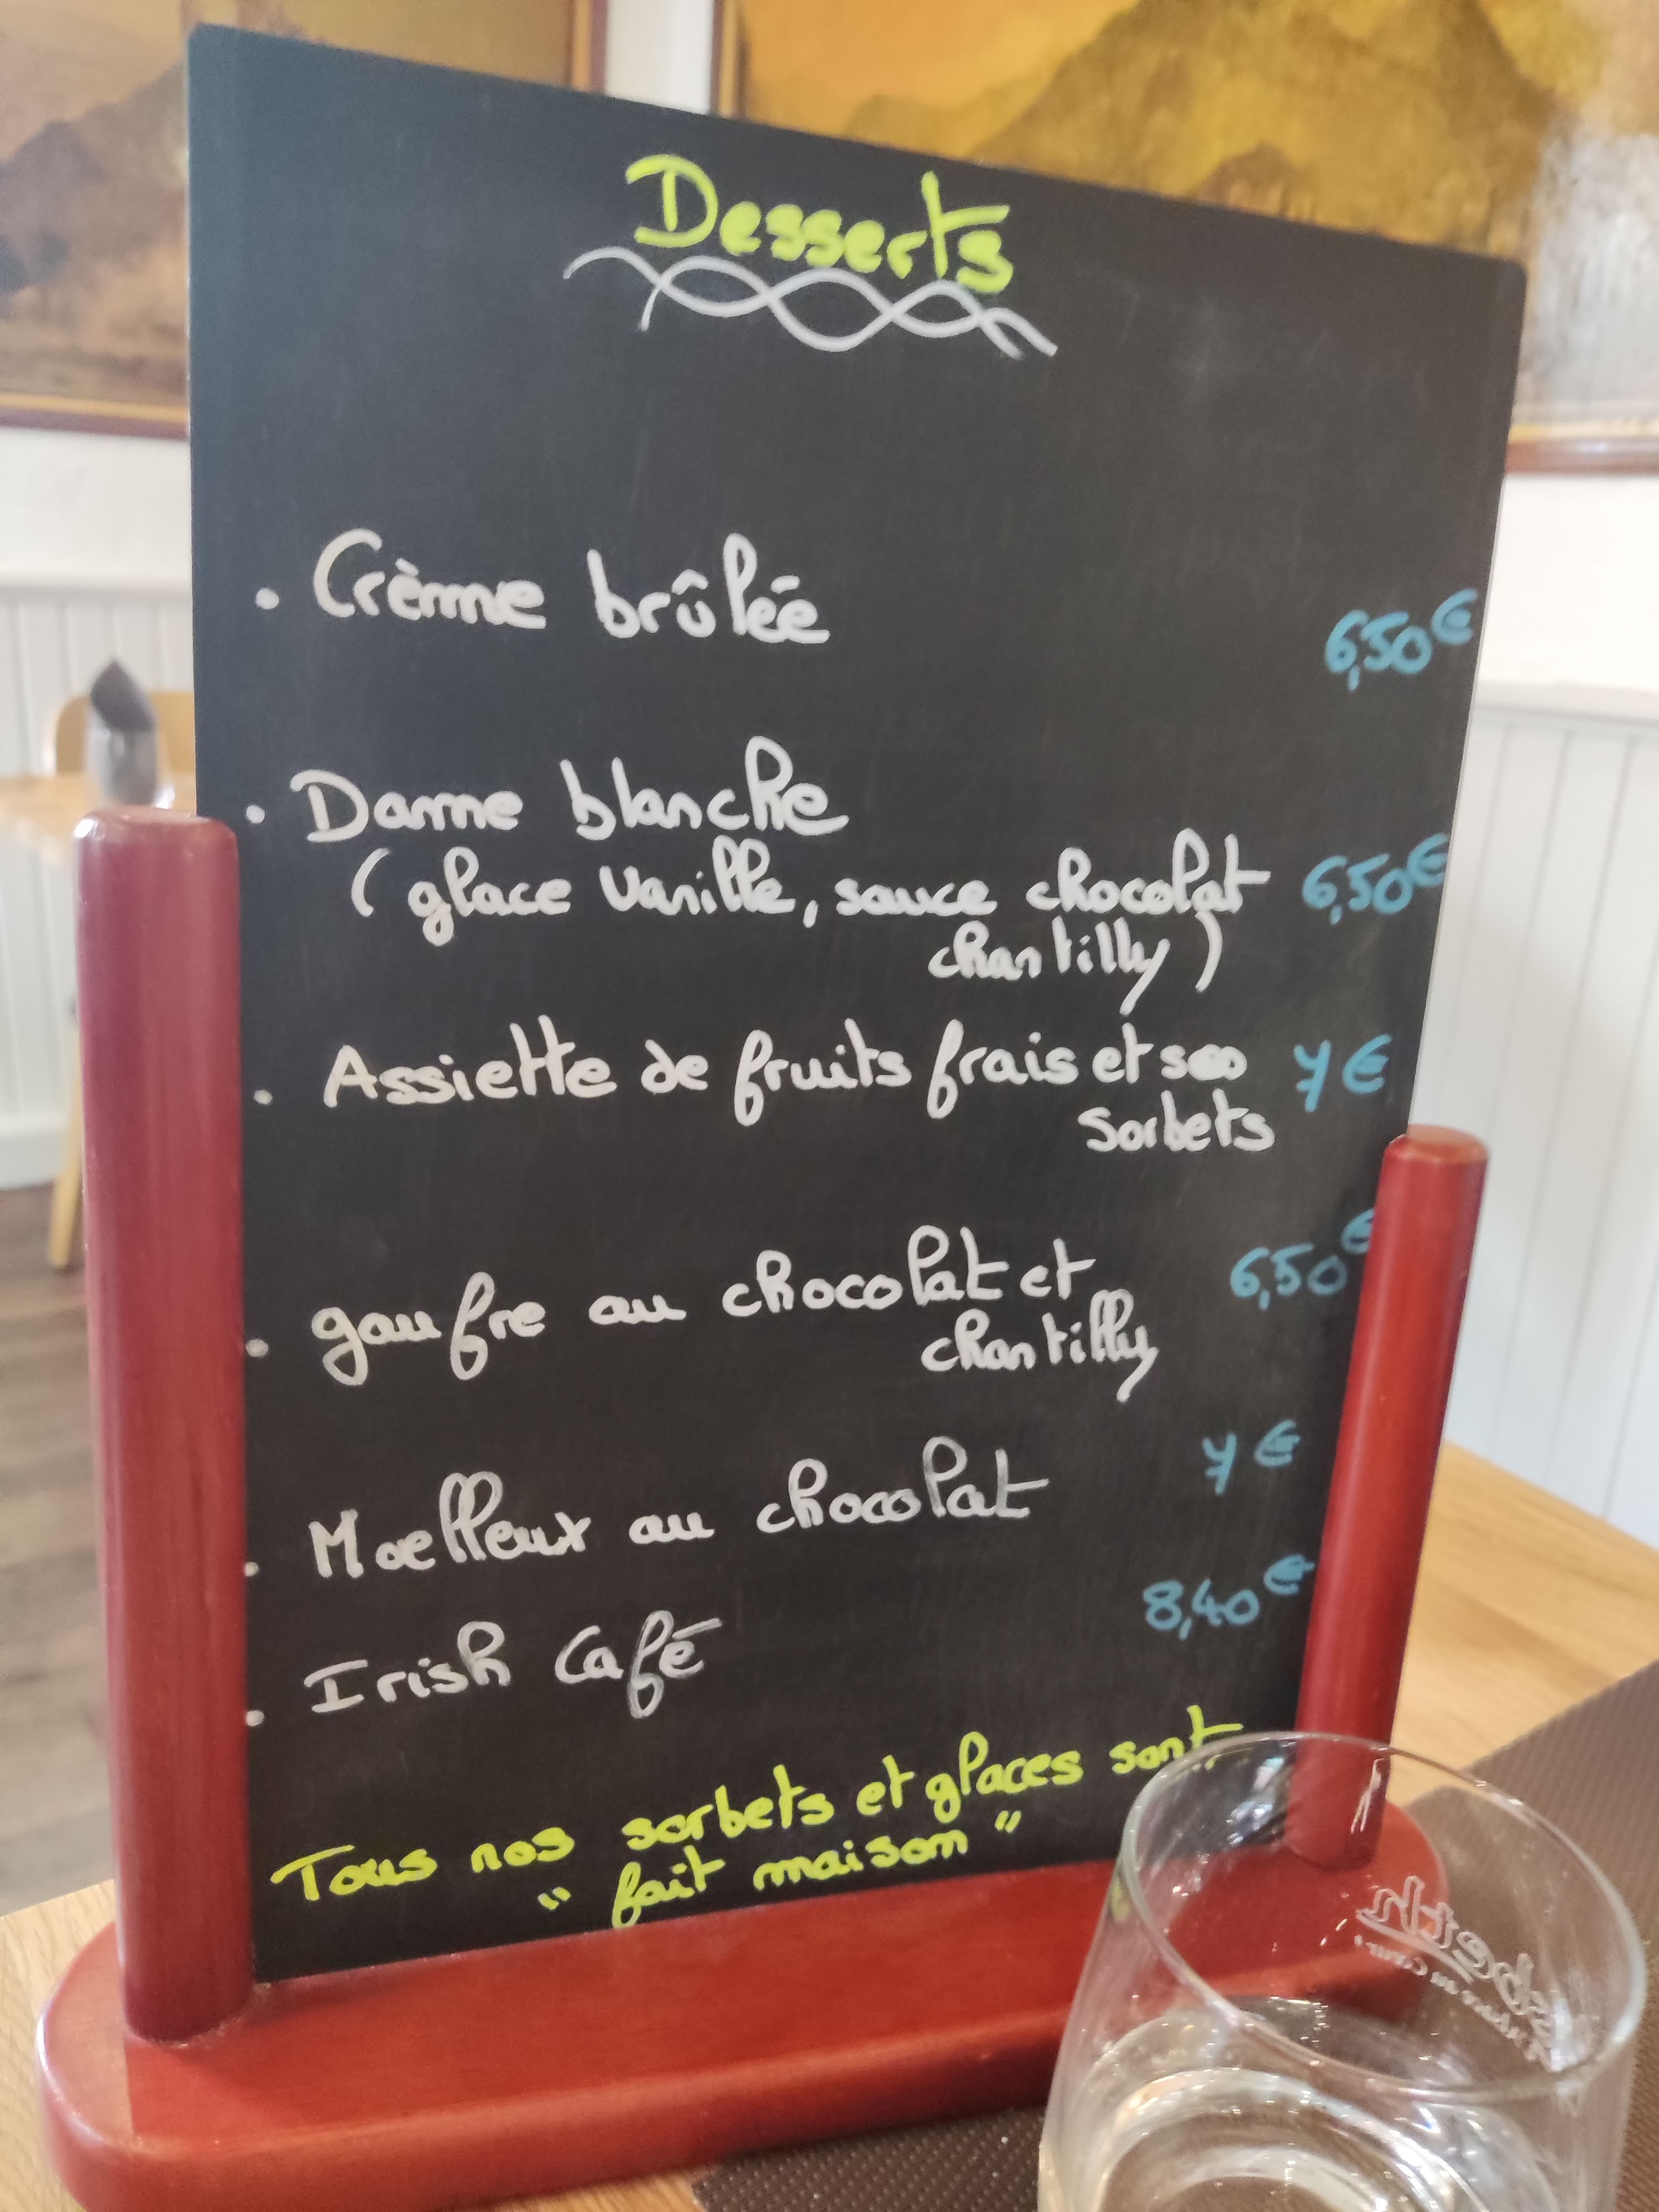 Desserts
• Crème brûlée 6,50€
• Dame blanche
(glace vanille, sauce chocolat 6,50€
chantilly)
• Assiette de fruits frais et ses 7€
sorbets
• gaufre au chocolat et 6,50€
chantilly
• Moelleux au chocolat 7€
• Irish Café 8,40€
Tous nos sorbets et glaces sont
"fait maison"